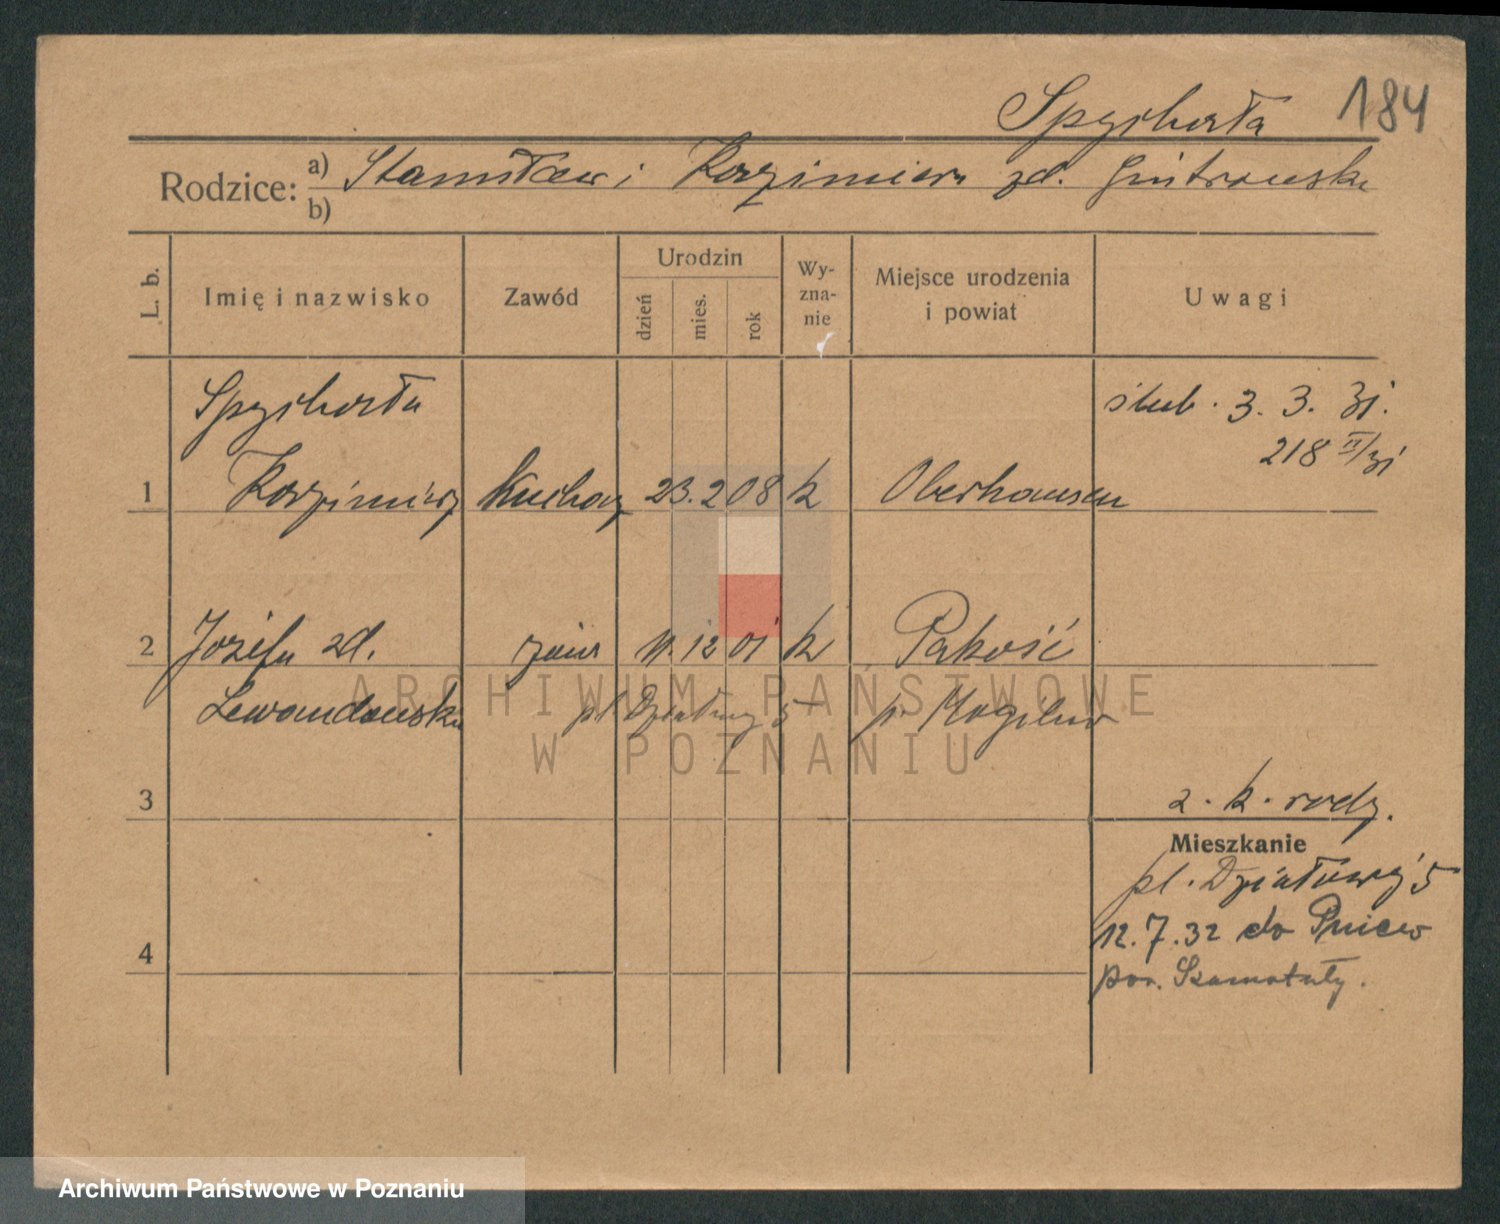 Spychała 184
Rodzice: a) Stanisław i Kazimiera zd. Gintrowska
b)
L. b. Imię i nazwisko Zawód Urodzin dzień mies. rok Wy-zna-nie Miejsce urodzenia i powiat Uwagi
Spychała ślub. 3. 3. 31.
218 II/31
1 Kazimierz Kucharz 23. 2 08 k Oberhausen
2 Józefa zd. żona 11. 12 01 k Pakość
Lewandowska pl. Działowy 5 p. Mogilno
ARCHIWUM PAŃSTWOWE
W POZNANIU
3 2. k. rodz.
Mieszkanie
pl. Działowy 5
12. 7. 32 do Pniew
4
pow. Szamotuły.
Archiwum Państwowe w Poznaniu